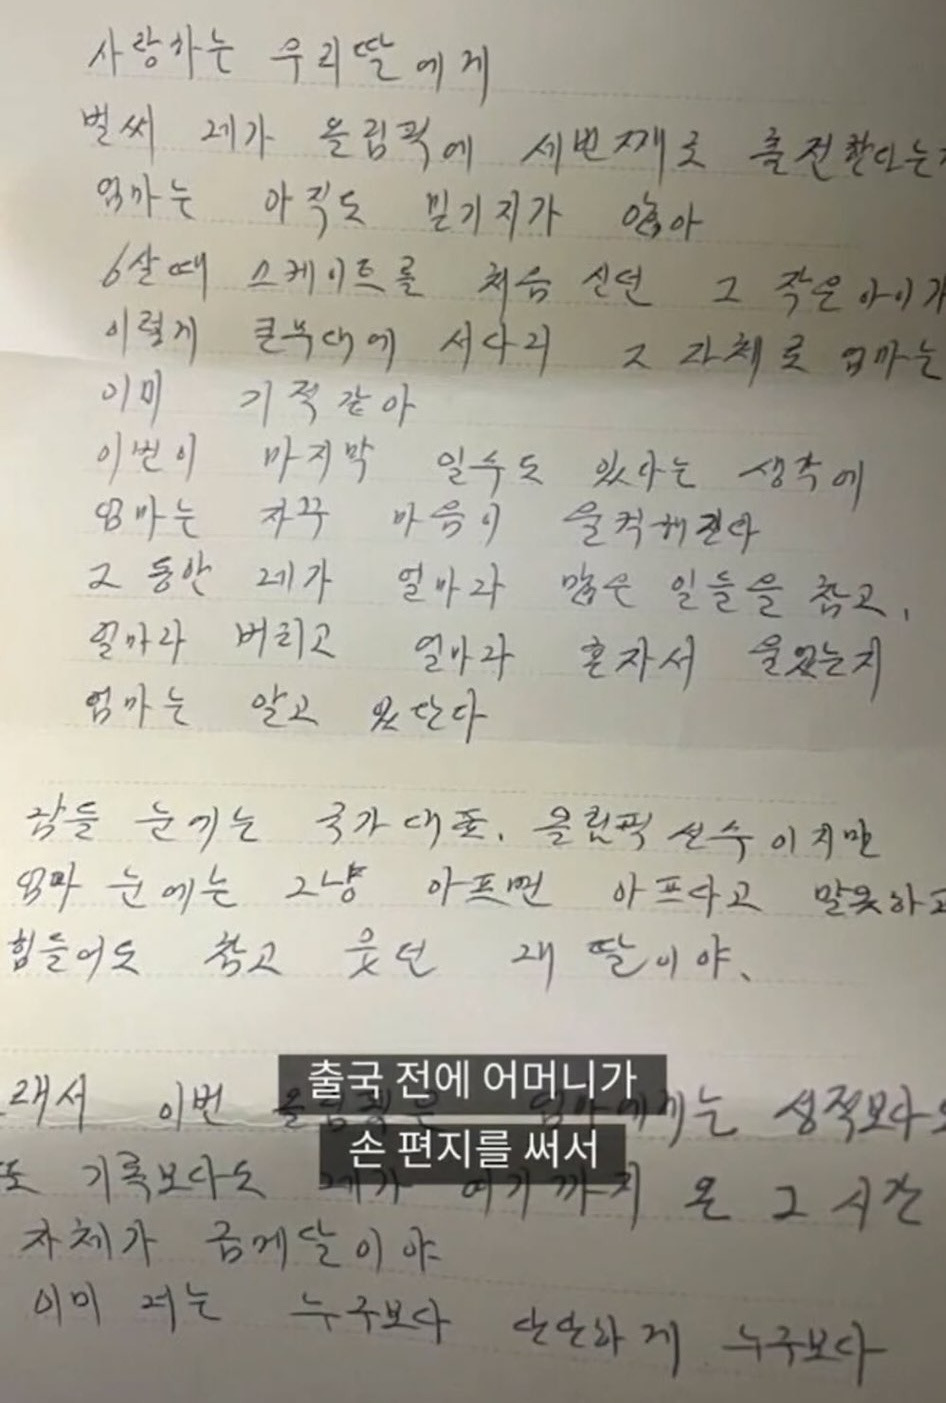 사랑하는 우리딸에게
벌써 네가 올림픽에 세번째로 출전한다는
엄마는 아직도 믿기지가 않아
6살때 스케이트를 처음 신던 그 작은아이가
이렇게 큰무대에 서다니 그 자체로 엄마는
이미 기적같아
이번이 마지막 일수도 있다는 생각에
엄마는 자꾸 마음이 울컥해진다
그 동안 네가 얼마나 많은 일들을 참고,
얼마나 버티고 얼마나 혼자서 울었는지
엄마는 알고 있단다
남들 눈에는 국가대표. 올림픽 선수이지만
엄마 눈에는 그냥 아프면 아프다고 말못하고
힘들어도 참고 웃던 내 딸이야.
그래서 이번 엄마에게는 성적보다도
또 기록보다도 네가 여기까지 온 그 시간
자체가 금메달이야
이미 너는 누구보다 단단하게 누구보다
출국 전에 어머니가
손 편지를 써서